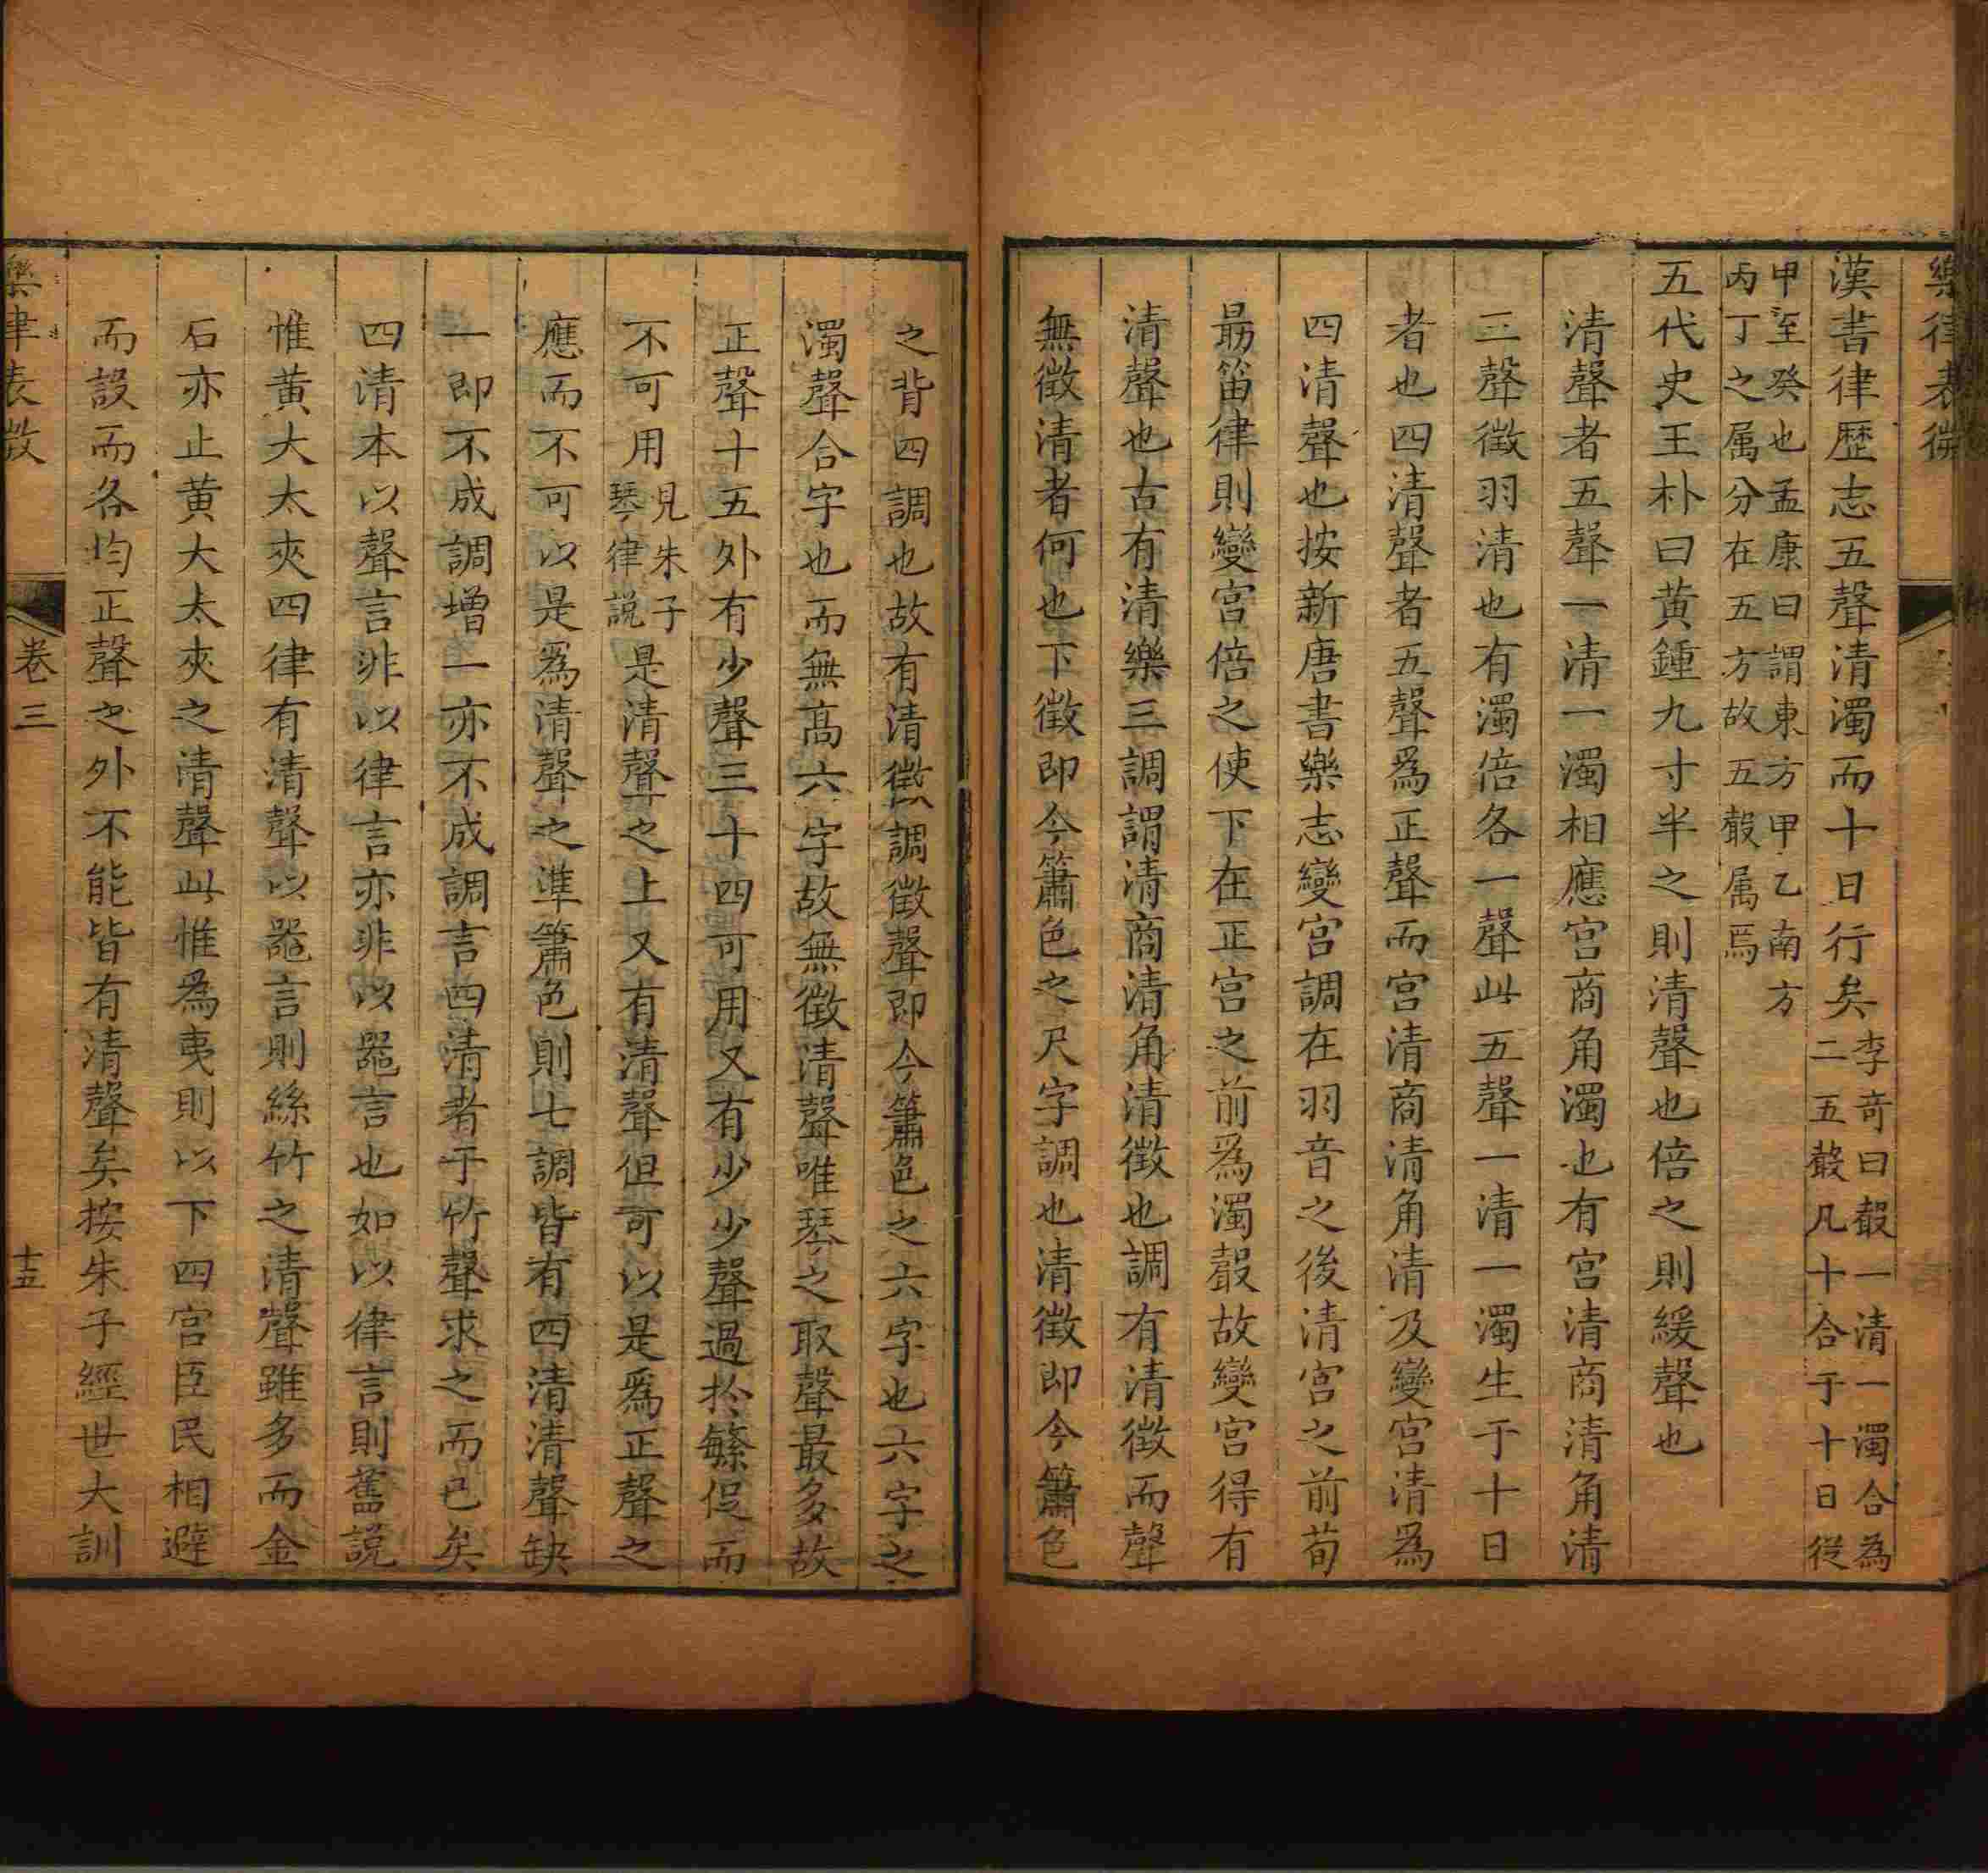 樂律表微
漢書律歷志五聲清濁而十日行矣李竒曰聲一清一濁合為二五聲凡十合于十日從
甲至癸也孟康曰謂東方甲乙南方丙丁之属分在五方故五聲属焉
五代史王朴曰黄鍾九寸半之則清聲也倍之則緩聲也
清聲者五聲一清一濁相應宫商角濁也有宫清商清角清
二聲徵羽清也有濁倍各一聲此五聲一清一濁生于十日
者也四清聲者五聲爲正聲而宫清商清角清及變宫清爲
四清聲也按新唐書樂志變宫調在羽音之後清宫之前荀
勗笛律則變宫倍之使下在正宫之前爲濁聲故變宫得有
清聲也古有清樂三調謂清商清角清徵也調有清徵而聲
無徵清者何也下徵即今簫色之尺字調也清徵即今簫色
之背四調也故有清徵調徵聲即今簫色之六字也六字之
濁聲合字也而無高六字故無徵清聲唯琴之取聲最多故
正聲十五外有少聲三十四可用又有少少聲過於繁促而
不可用見朱子琴律説是清聲之上又有清聲但可以是爲正聲之
應而不可以是爲清聲之準簫色則七調皆有四清清聲缺
一即不成調增一亦不成調言四清者于竹聲求之而已矣
四清本以聲言非以律言亦非以噐言也如以律言則舊説
惟黄大太夾四律有清聲以噐言則絲竹之清聲雖多而金
石亦止黄大太夾之清聲此惟爲夷則以下四宫臣民相避
而設而各均正聲之外不能皆有清聲矣按朱子經世大訓
樂律表微
卷三
十五